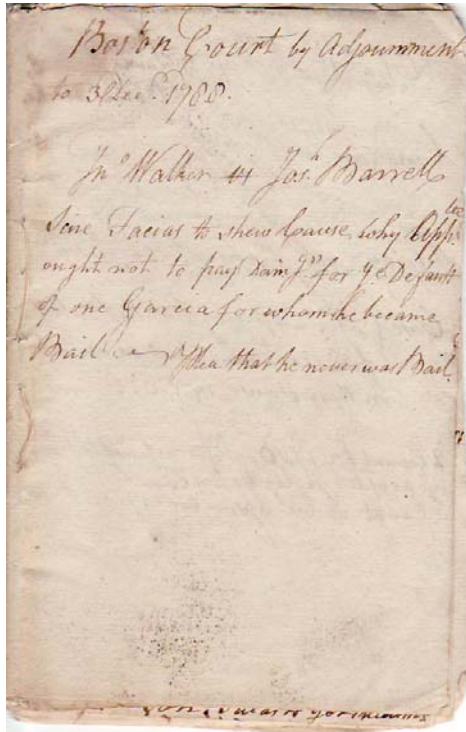 Boston Court by Adjournment
to 3 Dec.r 1788.
Jn.o Walker vs Jos.h Barrell
Scire Facias to shew Cause, why App.lee
ought not to pay for y.e Default
of one Garcia for whom he became
Bail Plea that he never was Bail.